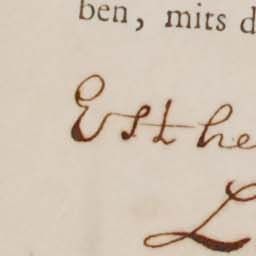 ben, mits d
Esthe
L